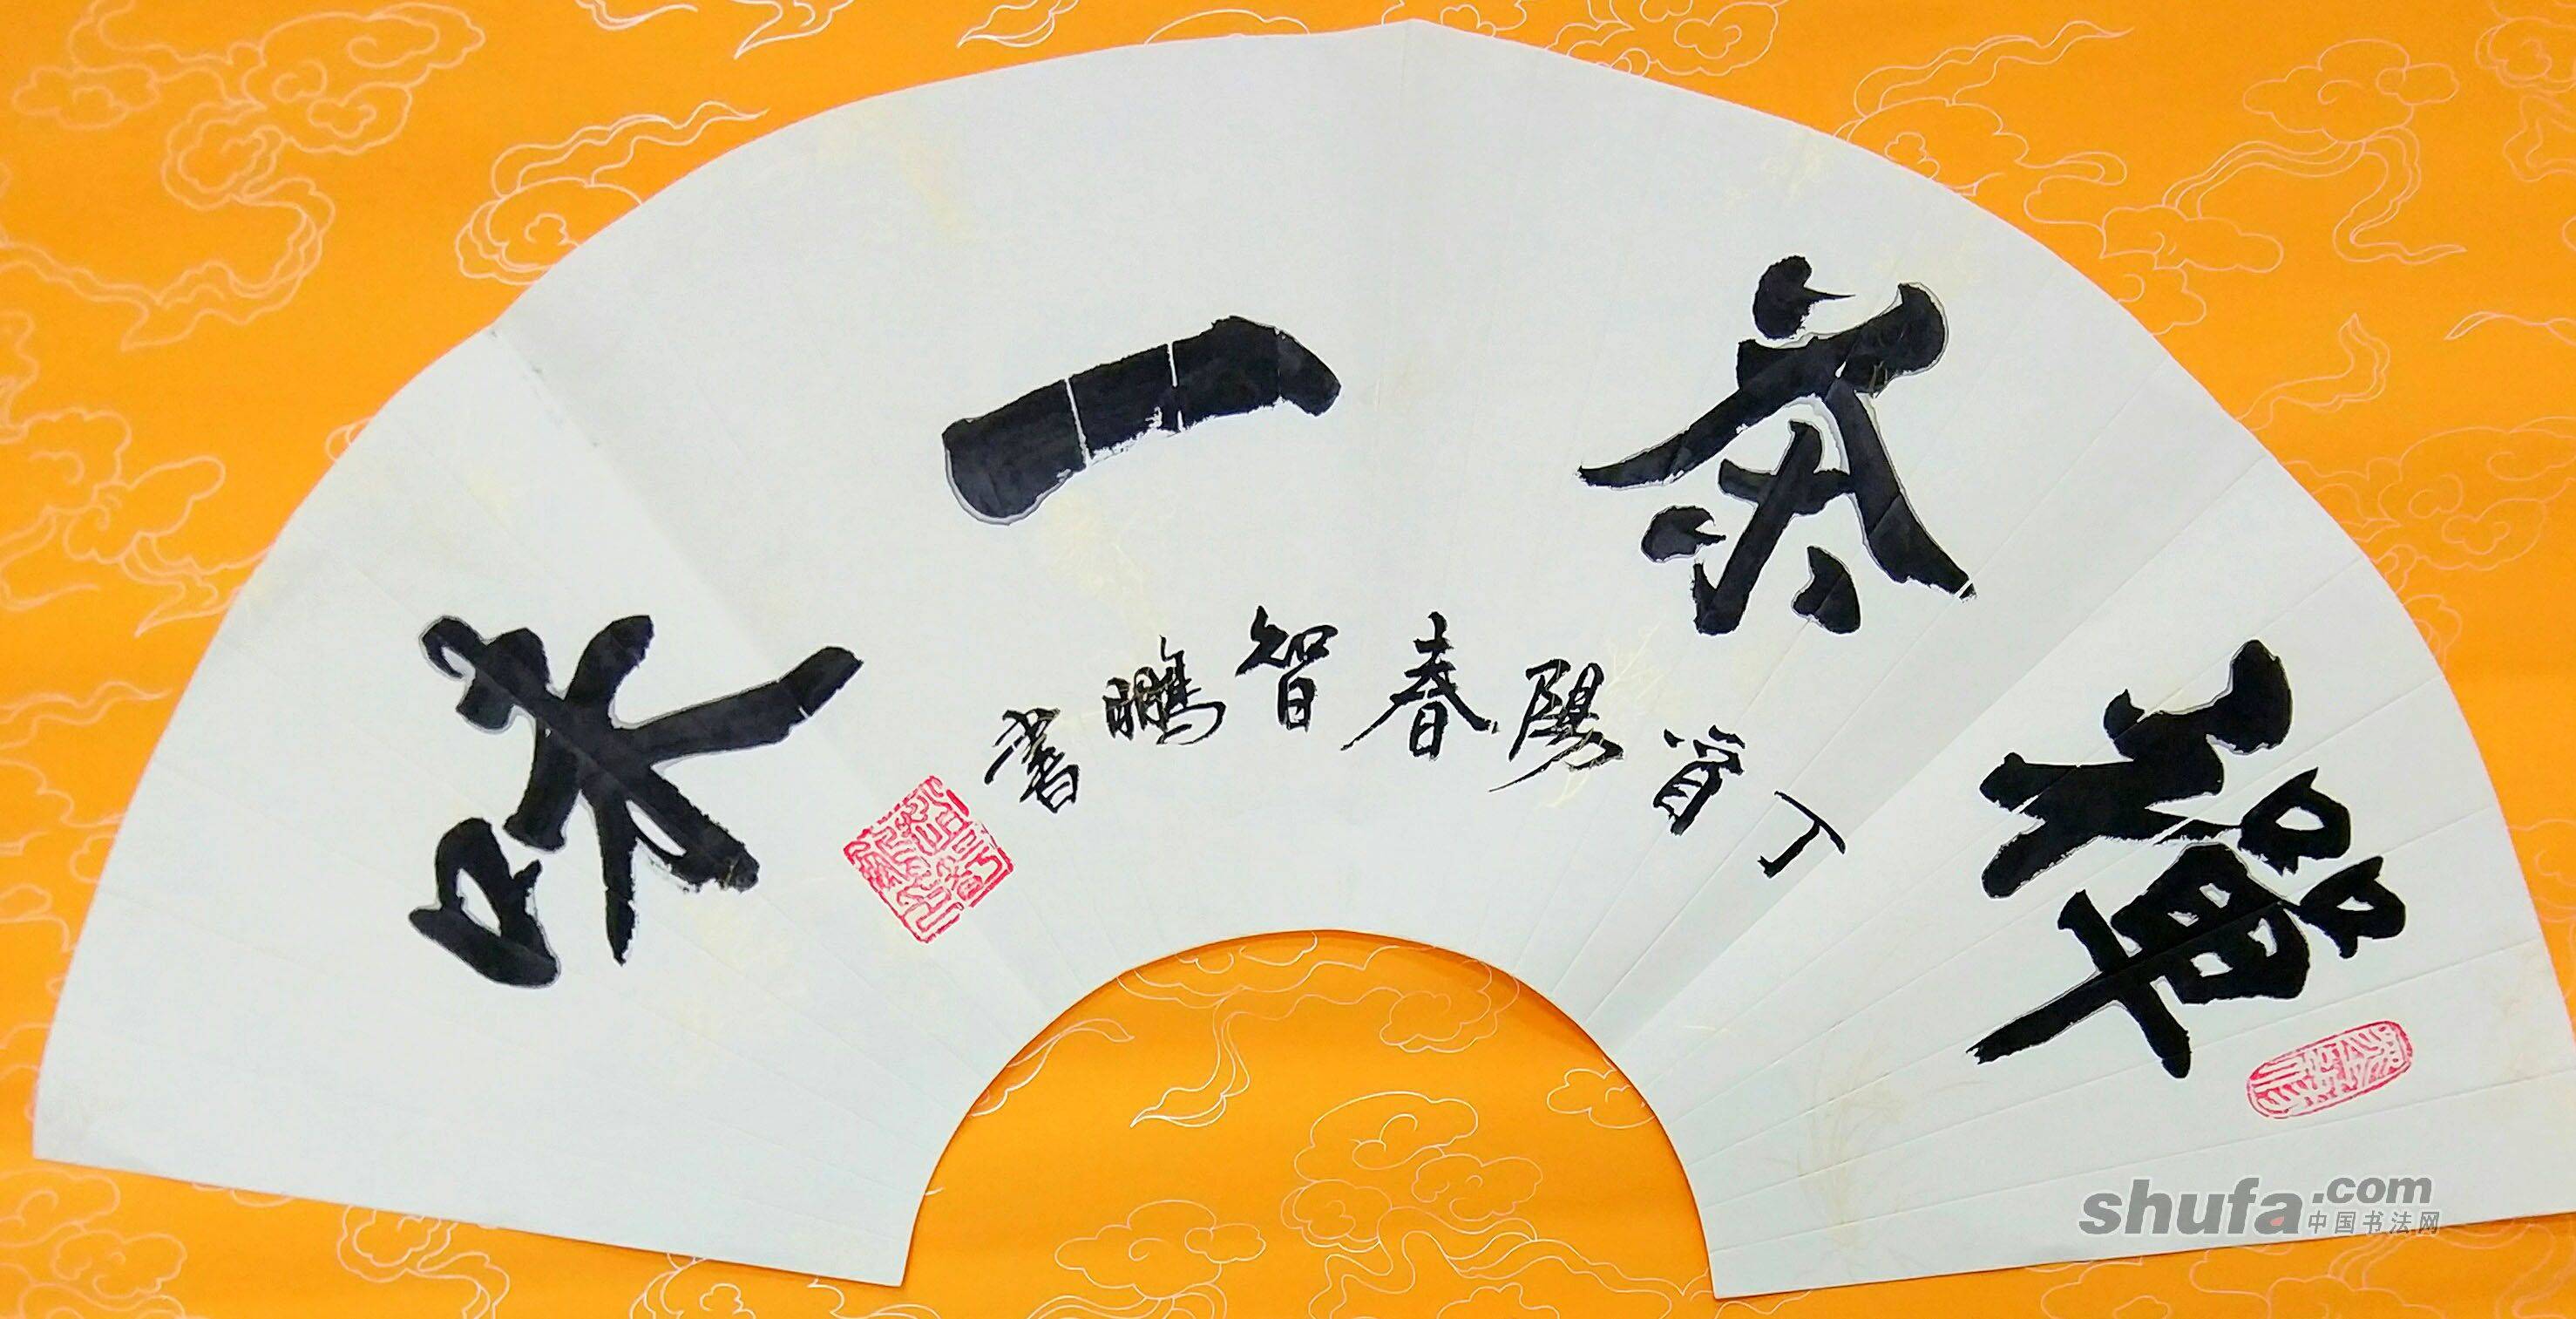 禪茶一味
丁酉陽春智鵬書
shufa.com
中国书法网